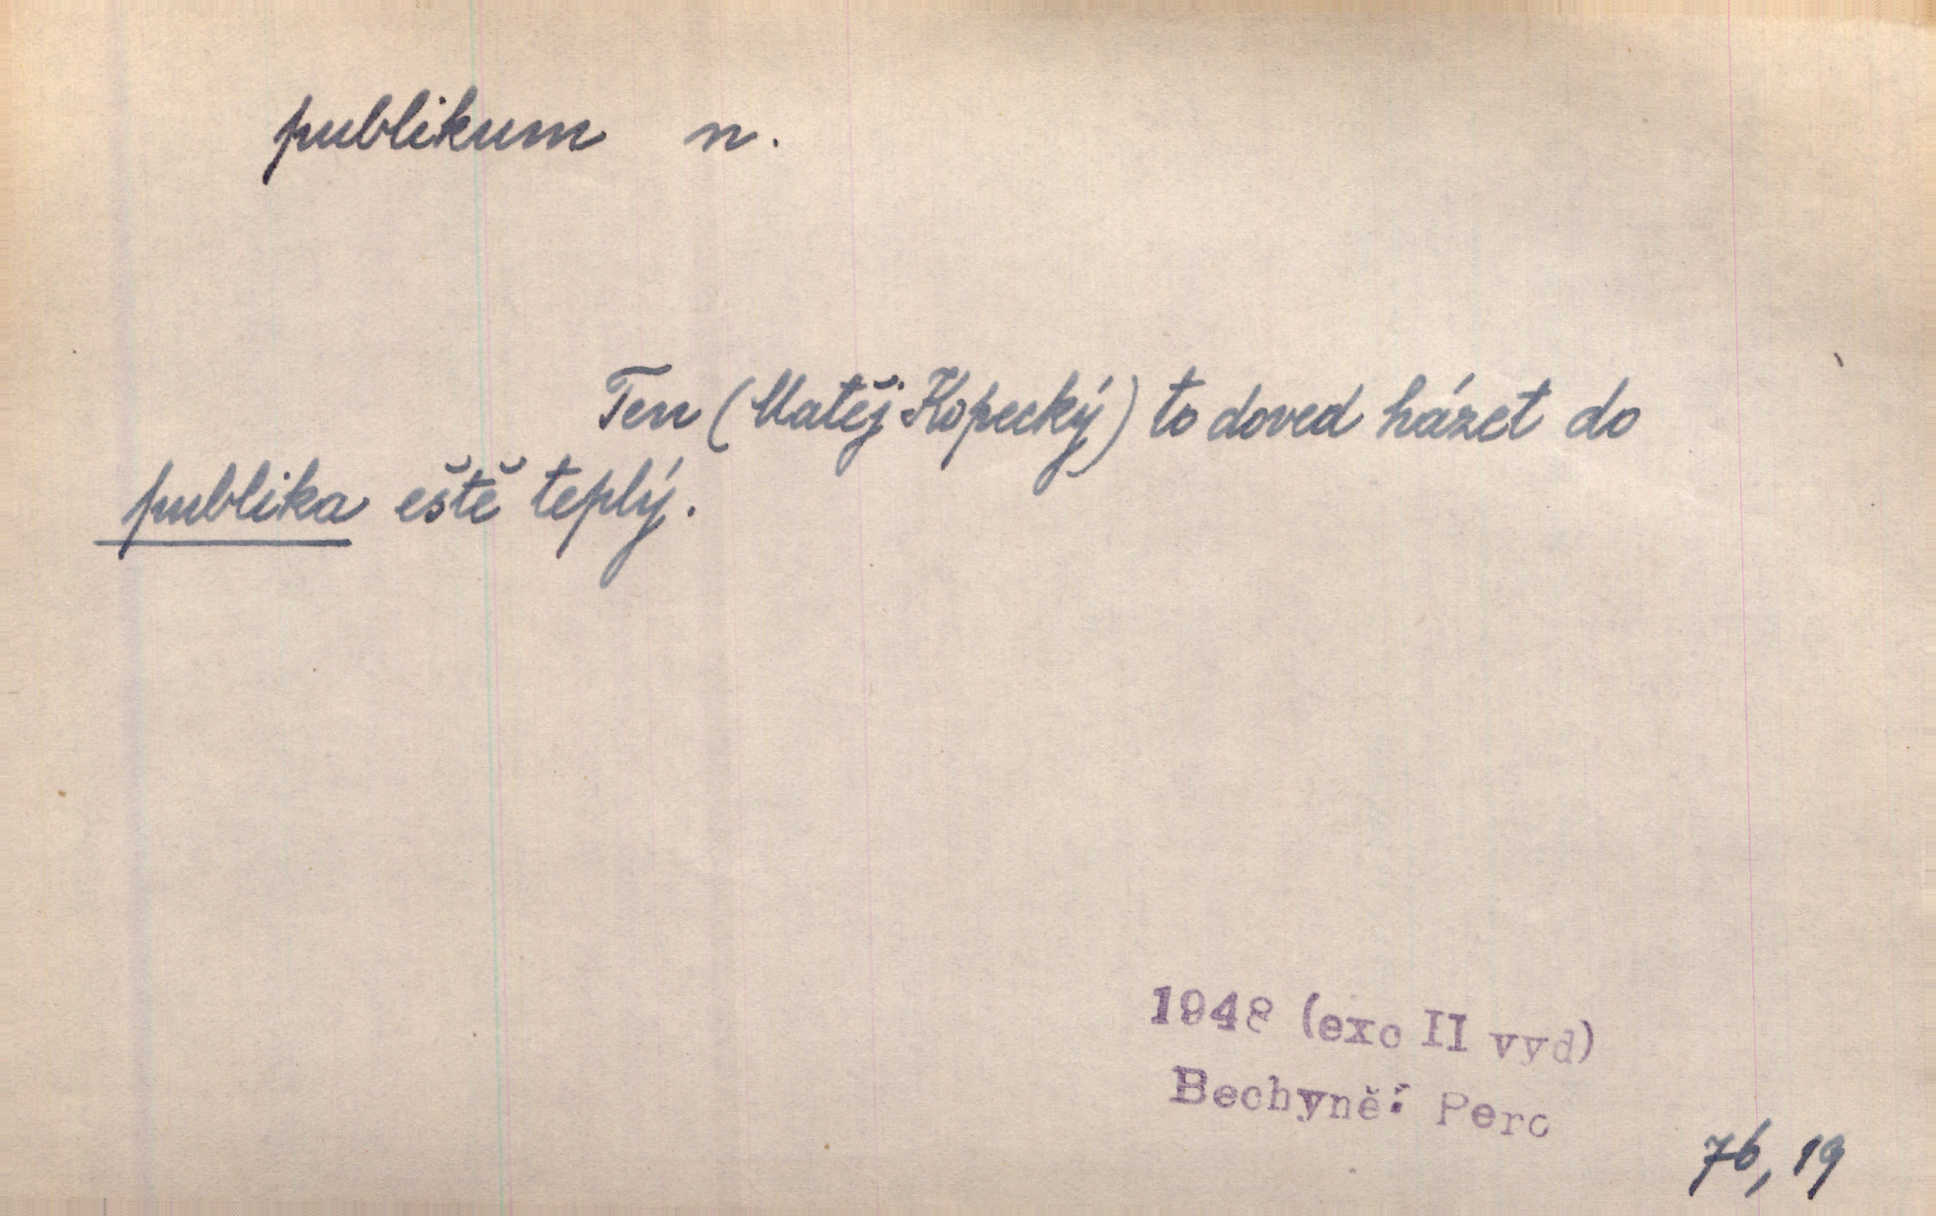 publikum n.
Ten (Matěj Kopecký) to doved házet do
publika eště teplý.
1948 (exc II vyd)
Bechyně: Perc
76, 19